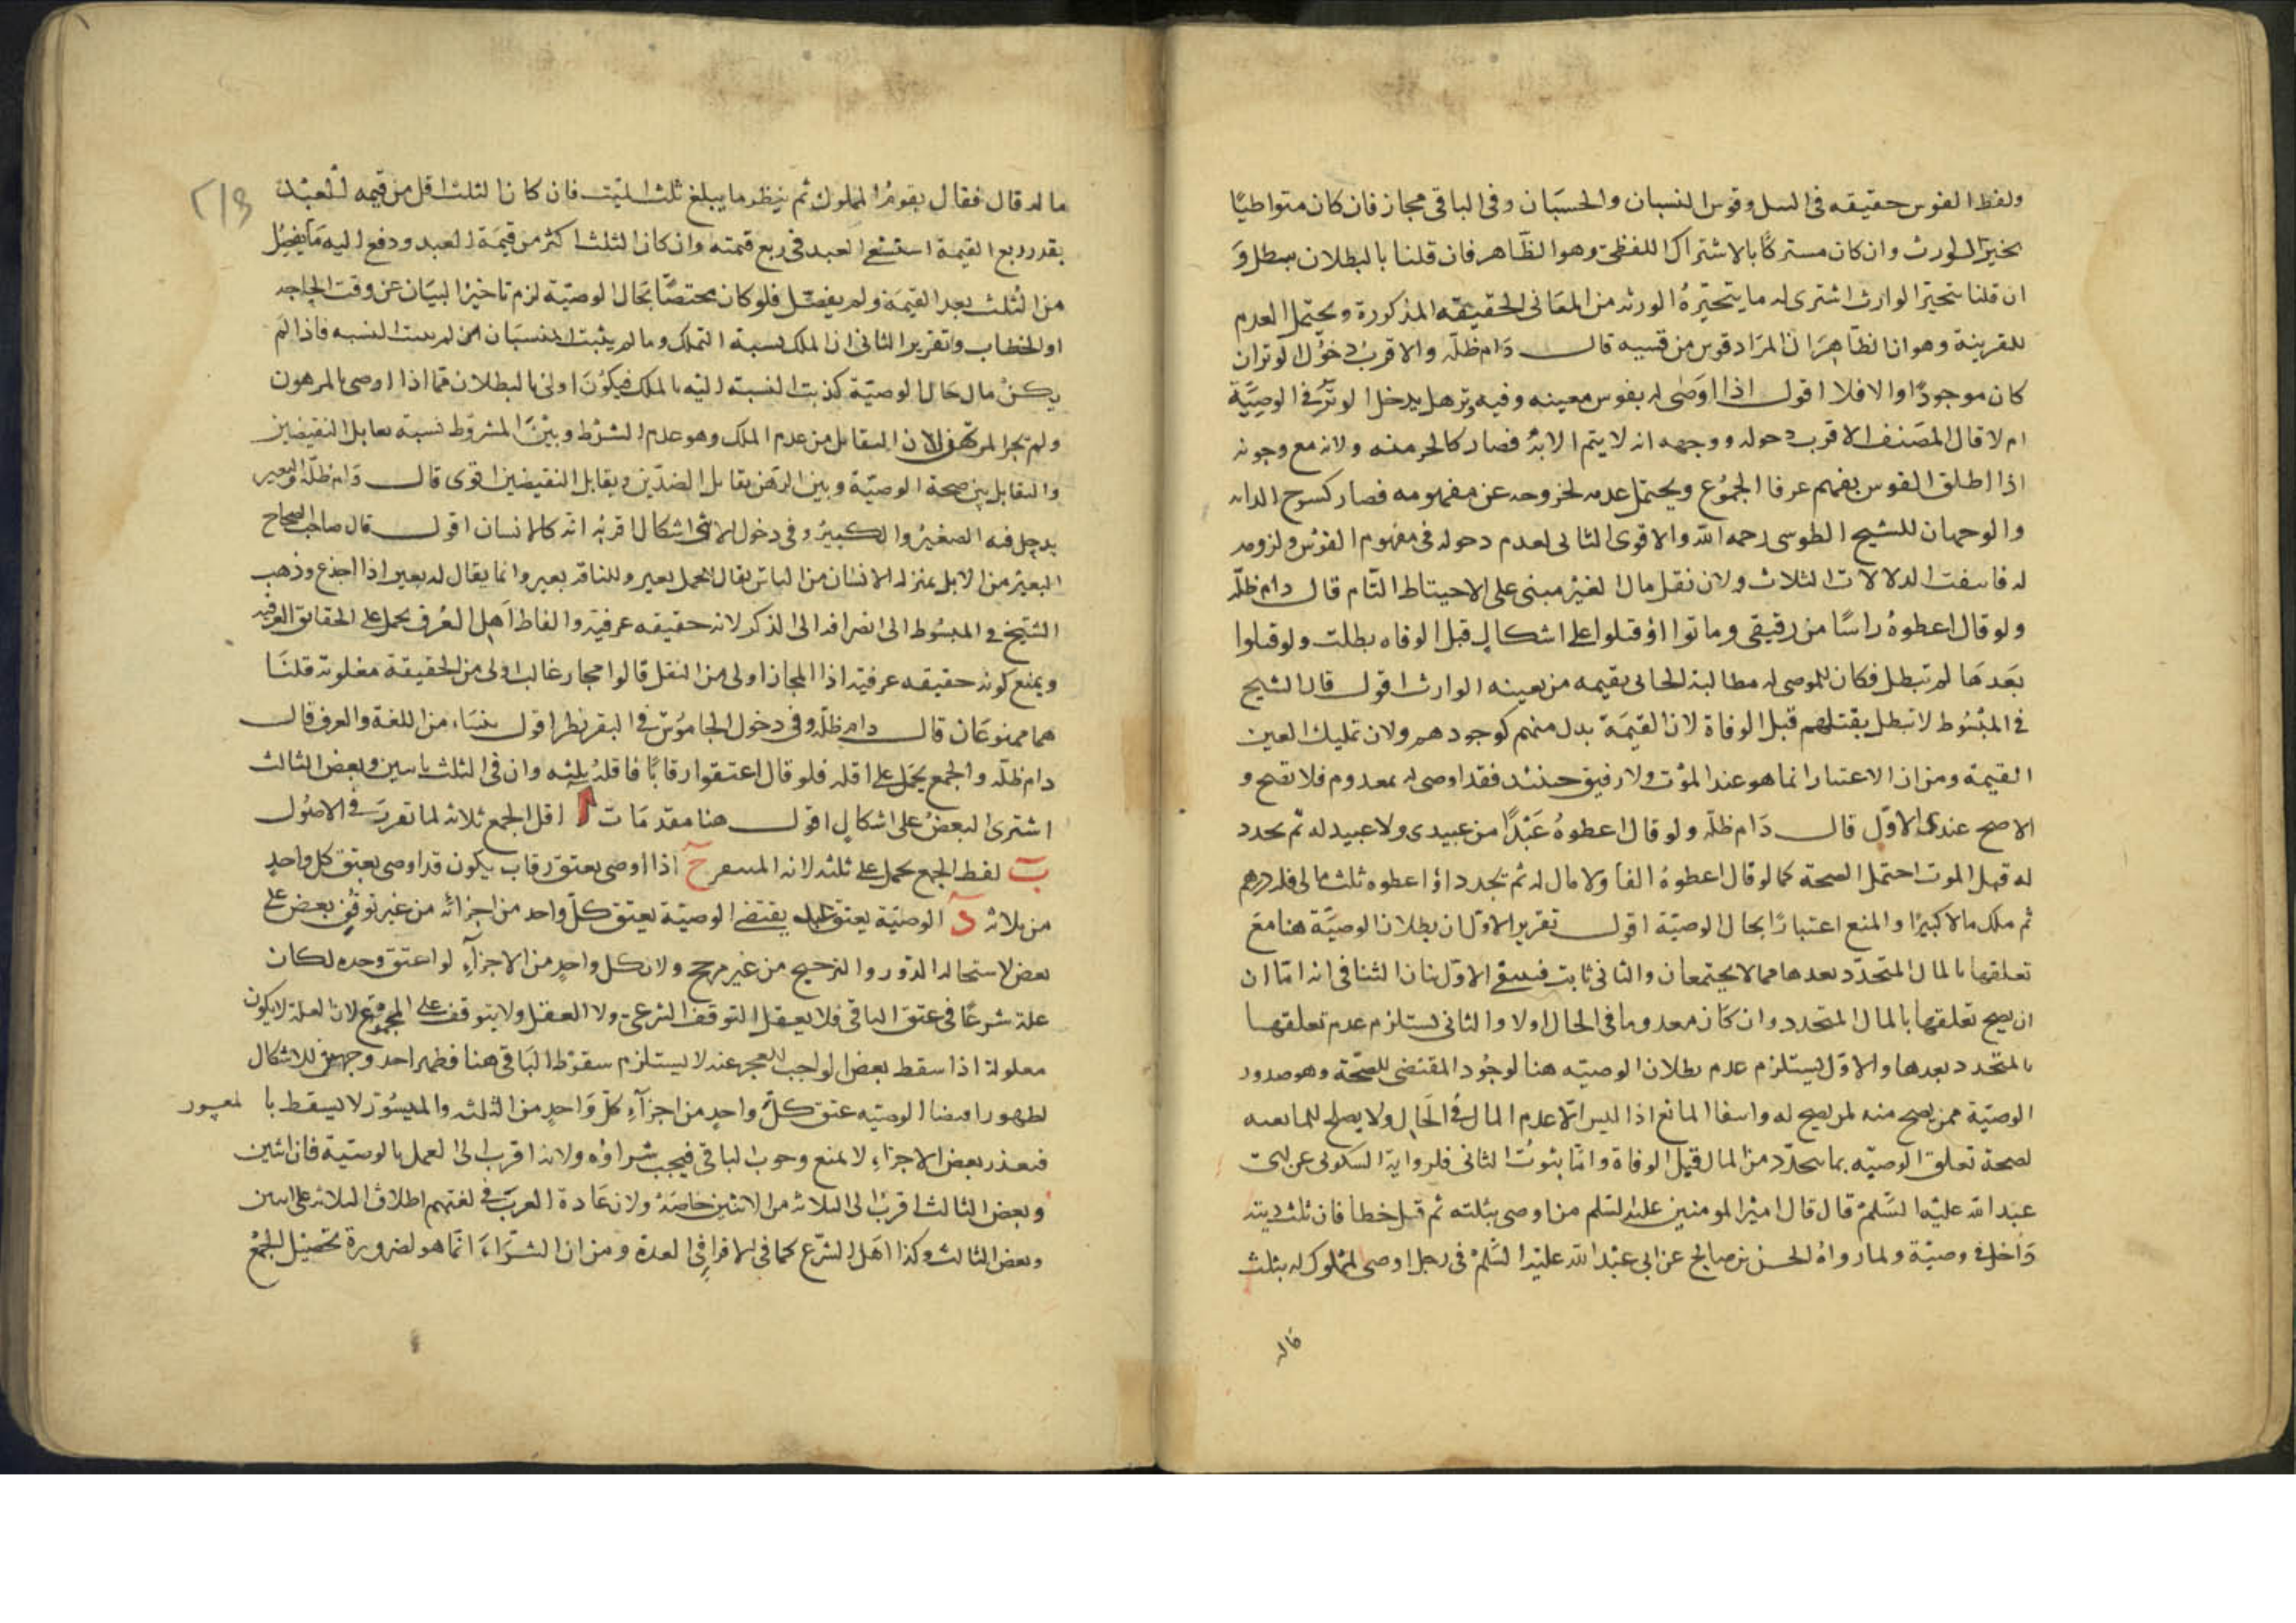 ولفظ القوس حقيقه في النبل وقوس النسبان والحسبان وفي الباقي مجاز فان كان متواطيًا
تخير الورث وان كان مشتركا بالاشتراك اللفظي وهو الظاهر فان قلنا بالبطلان بطل و
ان قلنا تتخير الوارث اشترى له ما يتحيره الورثه من المعاني الحقيقه المذكورة ويحتمل العدم
للقرينة وهو ان الظاهر ان المراد قوس من قسيه قال دام ظله والاقرب دخول الوتر ان
كان موجودًا والا فلا اقول اذا اوصى له بقوس معينه وفيه وتر هل يدخل الوتر في الوصية
ام لا قال المصنف الاقرب دخوله ووجهه انه لا يتم الا به فصار كالجزء منه ولانه مع وجوده
اذا اطلق القوس يفهم عرفا المجموع ويحتمل عدمه لخروجه عن مفهومه فصار كسرج الدابه
والوجهان للشيخ الطوسي رحمه الله والاقوى الثاني لعدم دخوله في مفهوم القوس ولزومه
له فانتفت الدلالات الثلاث ولان نقل مال الغير مبنى على الاحتياط التام قال دام ظله
ولو قال اعطوه راسًا من رقيقي وماتوا او قتلوا على اشكال قبل الوفاه بطلت ولو قتلوا
بعدها لم تبطل فكان للموصى له مطالبة الجاني بقيمه من يعينه الوارث اقول قال الشيخ
في المبسوط لا تبطل بقتلهم قبل الوفاة لان القيمة بدل منهم كوجودهم ولان تمليك العين
القيمة ومن ان الاعتبار انما هو عند الموت ولا رقيق حينئذ فقد اوصى له بمعدوم فلا تصح و
الاصح عندى الاول قال دام ظله ولو قال اعطوه عبدًا من عبيدى ولا عبيد له ثم تجدد
له قبل الموت احتمل الصحة كما لو قال اعطوه الفا ولا مال له ثم تجدد او اعطوه ثلث مالى فله درهم
ثم ملك مالا كثيرًا والمنع اعتبارًا بحال الوصية اقول تقرير الاول ان بطلان الوصية هنا مع
تعلقها بالمال المتجدد بعدها مما لا يجتمعان والثاني ثابت فينتفي الاول بيان التنافي انه اما ان
ان يصح تعلقها بالمال المتجدد وان كان معدوما في الحال اولا والثاني يستلزم عدم تعلقها
بالمتجدد بعدها والاول يستلزم عدم بطلان الوصيه هنا لوجود المقتضى للصحة وهو صدور
الوصية ممن يصح منه لمن يصح له وانتفا المانع اذ ليس الا عدم المال في الحال ولا يصلح للمانعيه
لصحة تعلق الوصيه بما تجدد من المال قبل الوفاة واما ثبوت الثاني فلرواية السكوني عن ابي
عبد الله عليه السلم قال قال امير المومنين عليه السلم من اوصى بثلثه ثم قتل خطا فان ثلث ديته
داخل في وصية ولما رواه الحسن بن صالح عن ابي عبد الله عليه السلم في رجل اوصى لمملوك له بثلث
ماله
٢١٣
ماله قال فقال يقوم المملوك ثم ينظر ما يبلغ ثلث الميت فان كان الثلث اقل من قيمه العبد
بقدر ربع القيمة استسعى العبد في ربع قيمته وان كان الثلث اكثر من قيمة العبد ودفع اليه ما يفضل
من الثلث بعد القيمة ولم يفصل فلو كان مختصًا بحال الوصية لزم تاخير البيان عن وقت الحاجه
او الخطاب وتقرير الثاني ان الملك نسبة التملك وما لم يثبت لم تثبت النسبه فاذا لم
يكن مال حال الوصية كذبت النسبة اليه بالملك فيكون اولى بالبطلان مما اذا اوصى بالمرهون
ولم يجز المرتهن لان التقابل من عدم الملك وهو عدم الشرط وبين المشروط نسبة تقابل النقيضين
والتقابل بين صحة الوصية وبين الرهن تقابل الضدين وتقابل النقيضين اقوى قال دام ظله والبعير
يدخل فيه الصغير والكبير وفي دخول الانثى اشكال اقربه انه كالانسان اقول قال صاحب الصحاح
البعير من الابل بمنزلة الانسان من الناس يقال للجمل بعير وللناقه بعير وانما يقال له بعير اذا اجذع وذهب
الشيخ في المبسوط الى انصرافه الى الذكر لانه حقيقه عرفية والفاظ اهل العرف يحمل على الحقائق العرفيه
ويمنع كونه حقيقه عرفية اذا المجاز اولى من النقل قالوا مجاز غالب اولى من الحقيقة مغلوبة قلنا
هما ممنوعان قال دام ظله وفي دخول الجاموس في البقر نظر اقول ينشاء من اللغة والعرف قال
دام ظله والجمع يحمل على اقله فلو قال اعتقوا رقابًا فاقله ثلثه وان في الثلث باثنين وبعض الثالث
اشترى البعض على اشكال اقول هنا مقدمات ا اقل الجمع ثلاثه لما تقرر في الاصول
ب لفظ الجمع يحمل على ثلثه لانه المتيقن ح اذا اوصى بعتق رقاب يكون قد اوصى بعتق كل واحد
من ثلاثه د الوصية بعتق يقتضي الوصية بعتق كل واحد من اجزائه من غير توقف بعض على
بعض لاستحاله الدور والترجيح من غير مرجح ولان كل واحد من الاجزاء لو اعتق وحده لكان
علة شرعًا في عتق الباقي فلا يعقل التوقف الشرعي ولا العقل ولا يتوقف على المجموع لان العلة لا يكون
معلولة اذا سقط بعض الواجب للعجز عنه لا يستلزم سقوط الباقي هنا فظهر احد وجهي للاشكال
لظهور اقتضا الوصيه عتق كل واحد من اجزاء كل واحد من الثلثه والميسور لا يسقط با لمعسور
فتعذر بعض الاجزاء لا يمنع وجوب الباقي فيجب شراؤه ولانه اقرب الى العمل بالوصية فان اثنين
وبعض الثالث اقرب الى الثلاثه من الاثنين خاصة ولان عادة العرب في لغتهم اطلاق الثلاثه على اثنين
وبعض الثالث وكذا اهل الشرع كما في الاقراء في العدة ومن ان الشراء انما هو لضرورة تحصيل الجمع